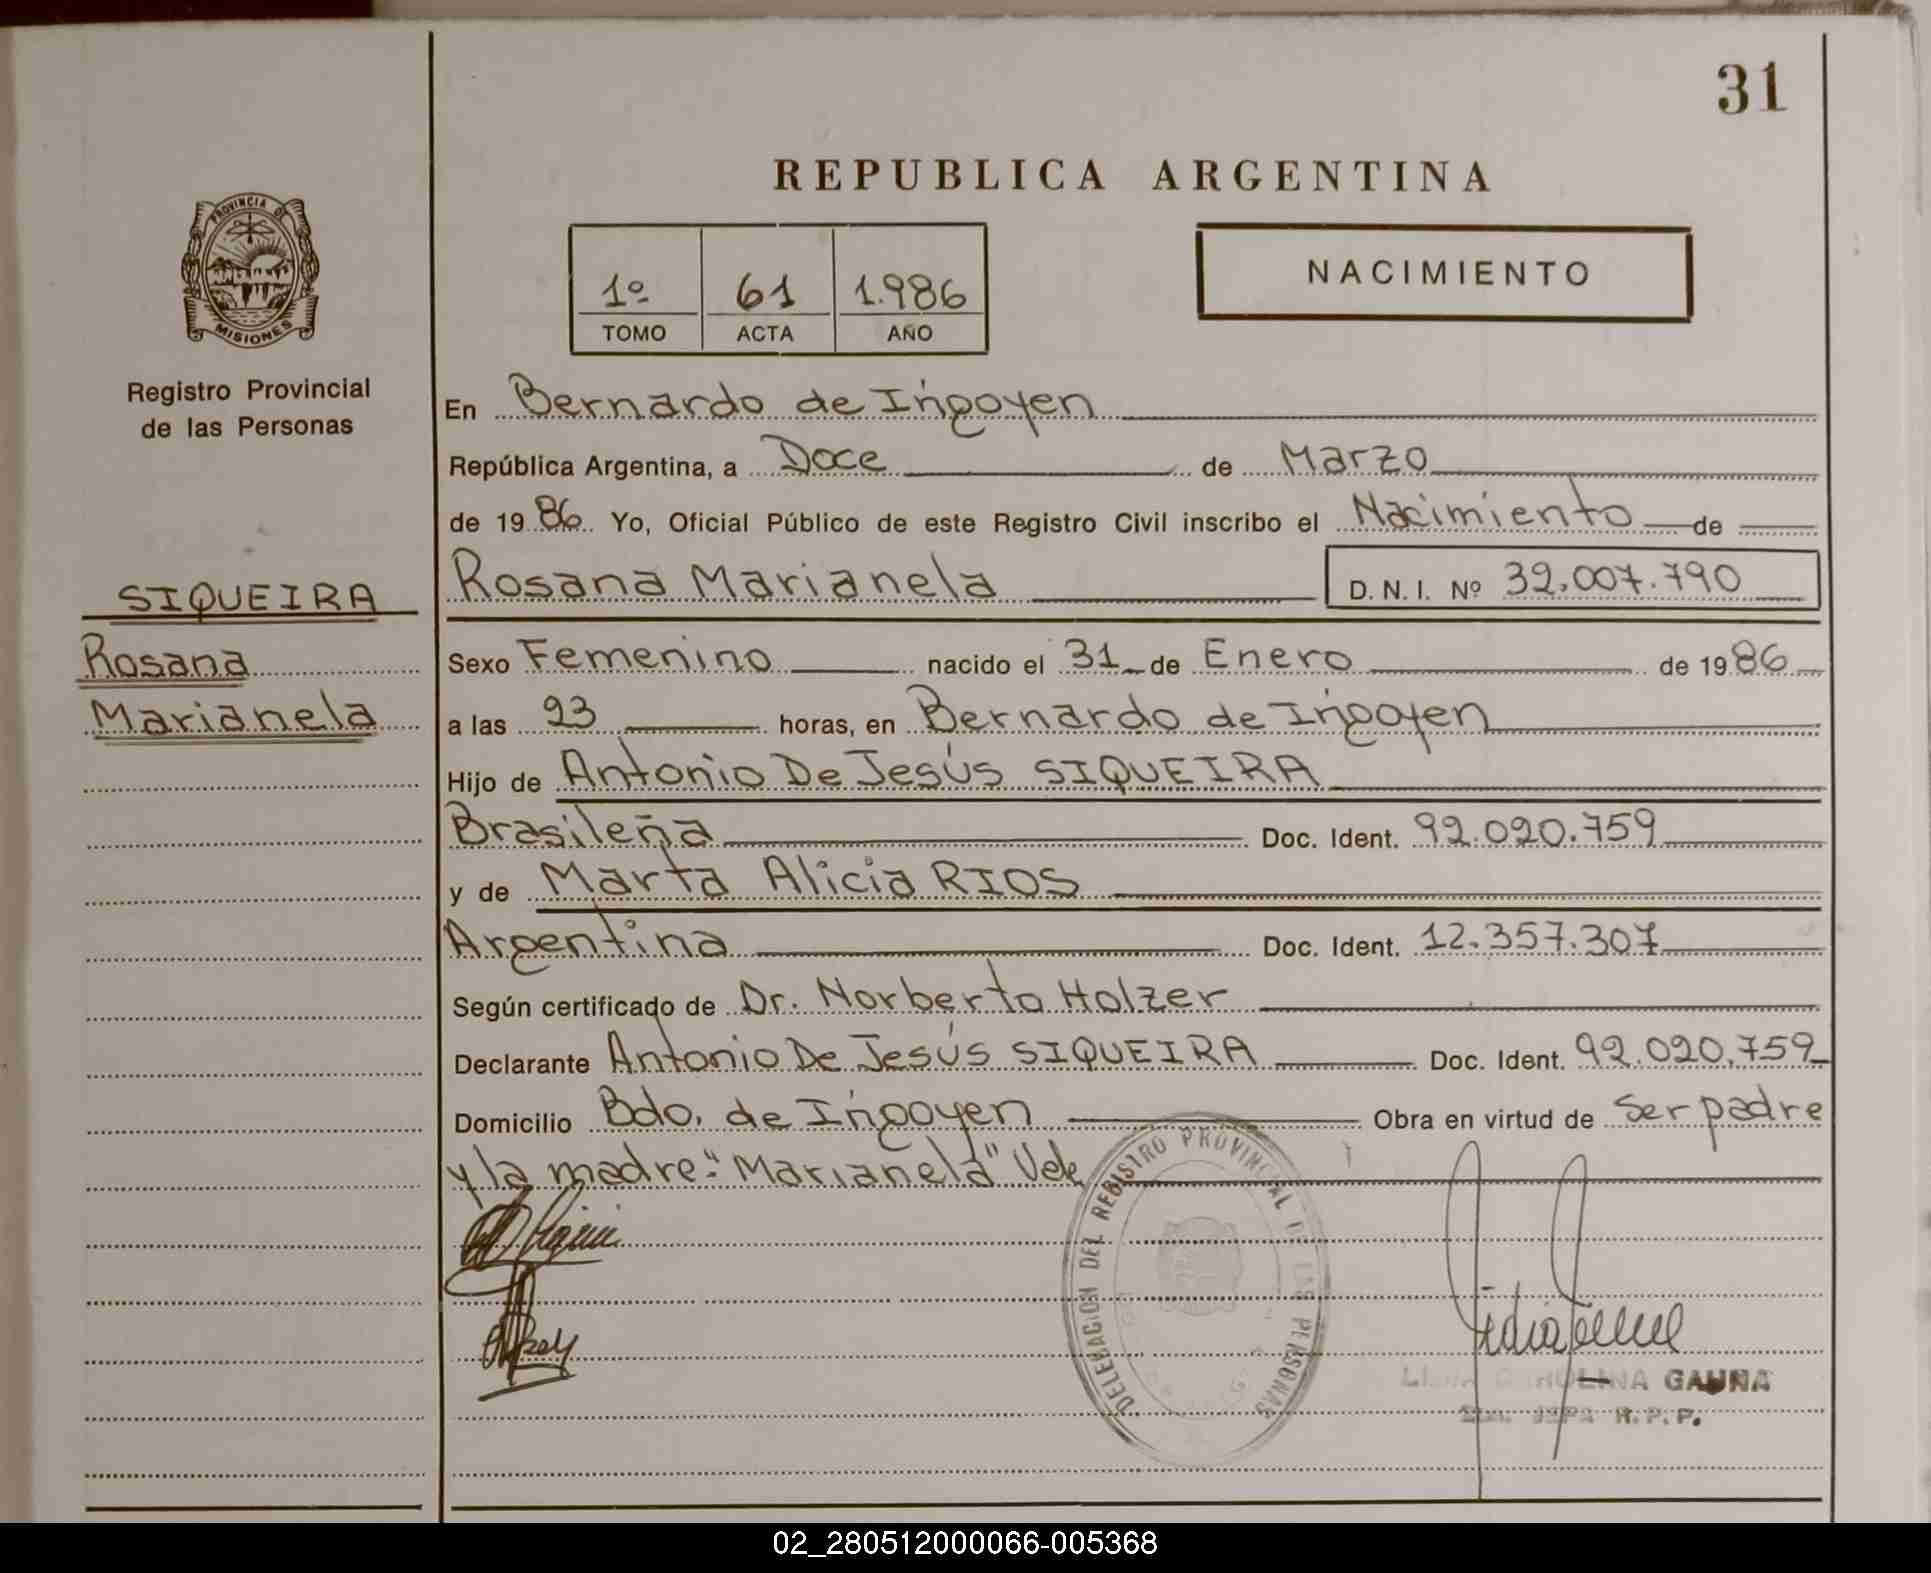 31
REPUBLICA ARGENTINA
PROVINCIA DE
MISIONES
Registro Provincial
de las Personas
1º 61 1.986
TOMO ACTA AÑO
NACIMIENTO
En Bernardo de Irigoyen
República Argentina, a Doce de Marzo
de 1986 Yo, Oficial Público de este Registro Civil inscribo el Nacimiento de
Rosana Marianela D. N. I. Nº 32.007.790
SIQUEIRA
Rosana
Marianela
Sexo Femenino nacido el 31 de Enero de 1986
a las 23 horas, en Bernardo de Irigoyen
Hijo de Antonio De Jesús SIQUEIRA
Brasileña Doc. Ident. 92.020.759
y de Marta Alicia RIOS
Argentina Doc. Ident. 12.357.307
Según certificado de Dr. Norberto Holzer
Declarante Antonio De Jesús SIQUEIRA Doc. Ident. 92.020.759
Domicilio Bdo. de Irigoyen Obra en virtud de Ser padre
y la madre: "Marianela" Vale
DELEGACION DEL REGISTRO PROVINCIAL DE LAS PERSONAS
CAROLINA GAUNA
JEFA R. P. P.
02_280512000066-005368